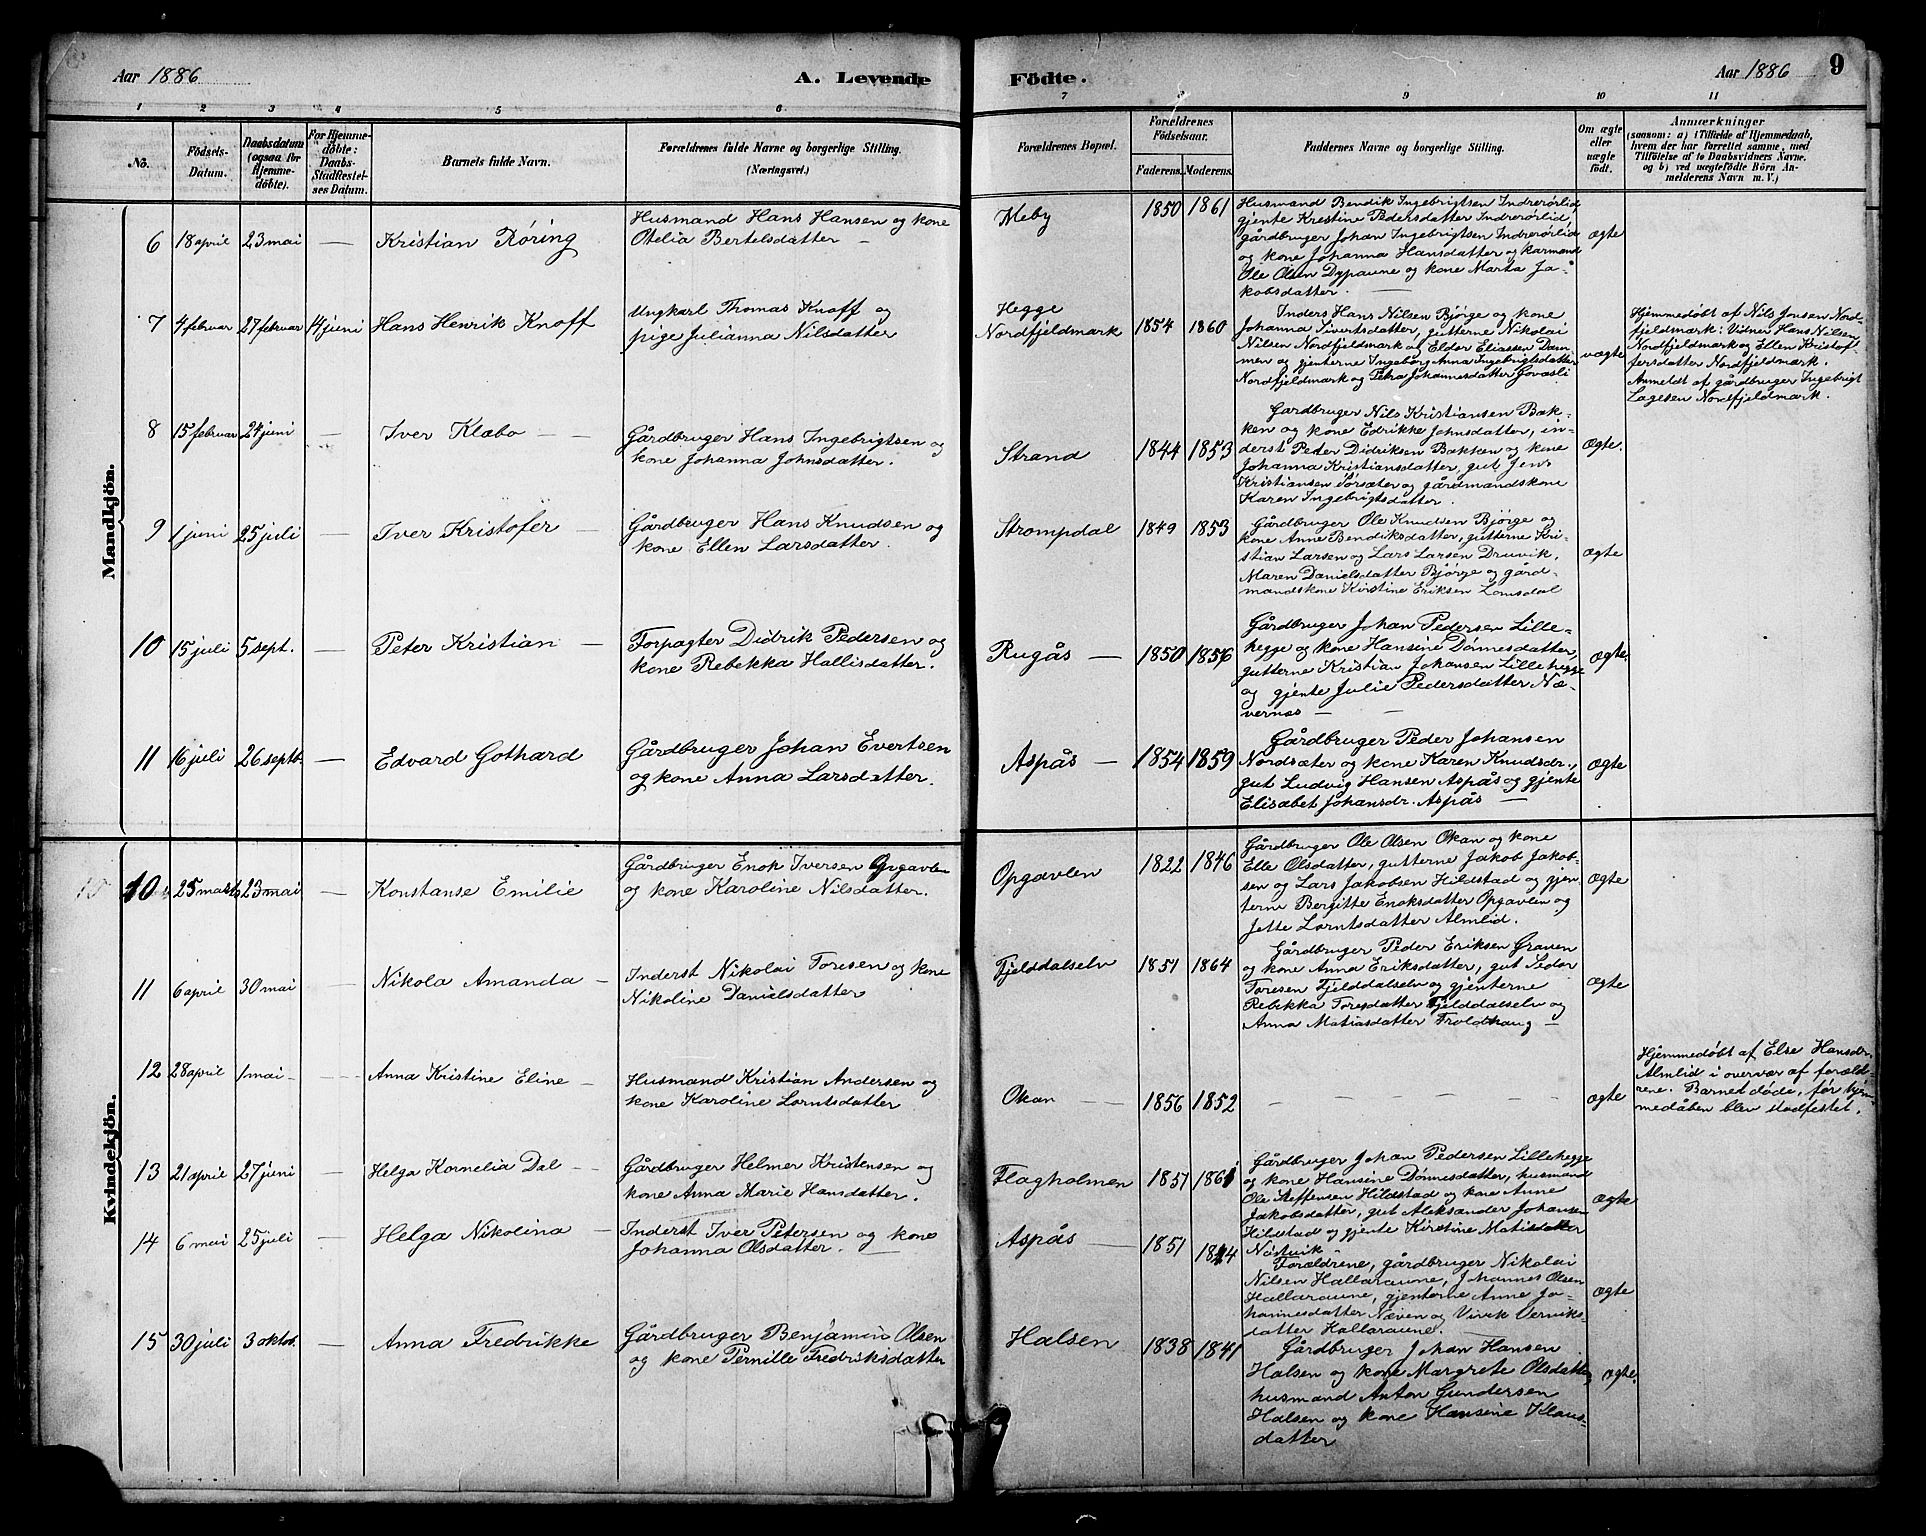 Aar 1886
A. Levende
Födte.
Aar 1886
9
1 2 3 4 5 6
7 8 9 10 11
No.
Födsels-
Datum.
Daabsdatum
(ogsaa for
Hjemme-
döbte).
For Hjemme-
döbte:
Daabs-
Stadfæstel-
ses Datum.
Barnets fulde Navn.
Forældrenes fulde Navne og borgerlige Stilling.
(Næringsvei.)
Forældrenes Bopæl.
Forældrenes
Födselsaar.
Faderens. Moderens.
Faddernes Navne og borgerlige Stilling.
Om ægte
eller
uægte
født.
Anmærkninger
(saasom: a) i Tilfælde af Hjemmedaab,
hvem der har forrettet samme, med
Tilføielse af to Daabsvidners Navne.
og b) ved uægtefödte Börn An-
melderens Navn m. V.)
Mandkjön.
6 18 april 23 mai — Kristian Röring
Husmand Hans Hansen og kone
Otelia Bertelsdatter —
Meby 1850 1861
Husmand Bendik Ingebrigtsen Indrerörlid,
gjente Kristine Pedersdatter Indrerörlid,
gårdbruger Johan Ingebrigtsen Indrerörlid
og kone Johanna Hansdatter og karmand
Ole Olsen Dypaune og kone Marta Ja-
kobsdatter. —
ægte
7 4 februar 27 februar 14 juni Hans Henrik Knoff
Ungkarl Thomas Knoff og
pige Julianna Nilsdatter
Hegge
Nordfjeldmark 1854 1860
Inders Hans Nilsen Bjørge og kone
Johanna Sivertsdatter, gutterne Nikolai
Nilsen Nordfjeldmark og Eldor Eliassen Dam-
men og gjenterne Ingeborg Anna Ingebrigtsdatter
Nordfjeldmark og Petra Johannesdatter Govasli
uægte
Hjemmedöbt af Nils Jonsen Nord-
fjeldmark: Vidner Hans Nilsen
Nordfjeldmark og Ellen Kristof-
fersdatter Nordfjeldmark.
Anmeldt af gårdbruger Ingebrigt
Lagesen Nordfjeldmark.
8 15 februar 24 juni — Iver Klæbo — —
Gårdbruger Hans Ingebrigtsen og
kone Johanna Johnsdatter.
Strand 1844 1853
Gardbruger Nils Kristiansen Bak-
ken og kone Edrikke Johnsdatter, in-
derst Peder Didriksen Bakken og kone
Johanna Kristiansdatter, gut Jens
Kristiansen Sörsæter og gårdmandskone
Karen Ingebrigtsdatter.
Ægte.
9 1 juni 25 juli — Iver Kristofer —
Gårdbruger Hans Knudsen og
kone Ellen Larsdatter.
Strompdal 1849 1853
Gårdbruger Ole Knudsen Bjørge og
kone Anne Bendiksdatter, gutterne Kri-
stian Larsen og Lars Larsen Druvik,
Maren Danielsdatter Bjørge og gård-
mandskone Kirstine Eriksen Lomsdal
ægte
10 15 juli 5 sept. — Peter Kristian —
Forpagter Didrik Pedersen og
kone Rebekka Hallisdatter.
Rugås — 1850 1856
Gårdbruger Johan Pedersen Lille-
hegge og kone Hansine Dönnesdatter,
gutterne Kristian Johansen Lillehegge
og gjente Julie Pedersdatter Næ-
vernes — —
ægte.
11 16 juli 26 septb. — Edvard Gothard
Gårdbruger Johan Evertsen
og kone Anna Larsdatter.
Aspås — 1854 1859
Gårdbruger Peder Johansen
Nordsæter og kone Karen Knudsdr.,
gut Ludvig Hansen Aspås og gjente
Elisabet Johansdr. Aspås —
ægte
Kvindekjön.
10 25 marts 23 mai — Konstanse Emilie
Gårdbruger Enok Iversen Opgavlen
og kone Karoline Nilsdatter.
Opgavlen 1822 1846
Gårdbruger Ole Olsen Okan og kone
Elle Olsdatter, gutterne Jakob Jakob-
sen og Lars Jakobsen Hildstad og gjen-
terne Bergitte Enoksdatter Opgavlen og
Jette Lorntsdatter Almlid.
ægte
11 6 april 30 mai — Nikola Amanda —
Inderst Nikolai Toresen og kone
Nikoline Danielsdatter
Fjelddalselv 1851 1864
Gårdbruger Peder Eriksen Graven
og kone Anna Eriksdatter, gut Pedor
Toresen Fjelddalselv og gjenterne
Rebekka Toresdatter Fjelddalselv og
Anna Matiasdatter Troldhaug —
ægte
12 28 april 1 mai — — Anna Kristine Eline —
Husmand Kristian Andersen og
kone Karoline Lorntsdatter
Okan — — 1856 1852 — — — — — —
ægte
Hjemmedöbt af Else Hansdr.
Almlid i overvær af foræld-
rene. Barnet døde, før hjem-
medåben blev stadfestet.
13 21 april 27 juni — Helga Kornelia Dal —
Gårdbruger Helmer Kristensen og
kone Anna Marie Hansdatter.
Flagholmen 1857 1861
Gårdbruger Johan Pedersen Lillehegge
og kone Hansine Dönnesdatter, husmand
Ole Steffensen Hildstad og kone Anne
Jakobsdatter, gut Aleksander Johansen
Hildstad og gjente Kirstine Matisdatter
Nøstvik
ægte
14 6 mai 25 juli — Helga Nikolina —
Inderst Iver Petersen og kone
Johanna Olsdatter. —
Aspås — 1851
Forældrene, gårdbruger Nikolai
Nilsen Hallaraune, Johannes Olsen
Hallaraune, gjenterne Anne Jo-
hannesdatter Næven og Vivik Verniks-
datter Hallaraune.
ægte
15 30 juli 3 oktob. — Anna Fredrikke
Gårdbruger Benjamin Olsen
og kone Pernille Fredriksdatter
Halsen 1838 1841
Gårdbruger Johan Hansen
Halsen og kone Margrete Olsdatter,
husmand Anton Gundersen
Halsen og kone Hansine Klaus-
datter
ægte.